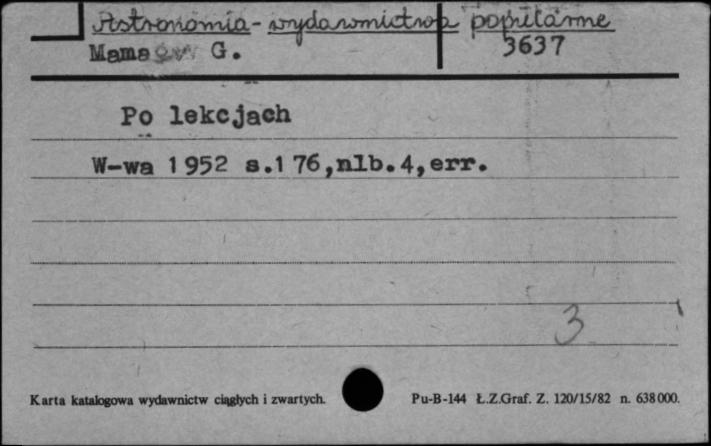 Astronomia - wydawnictwa popularne
G. 3637
Po lekcjach
W-wa 1952 s.176,nlb.4,err.
3
Karta katalogowa wydawnictw ciągłych i zwartych. Pu-B-144 Ł.Z.Graf. Z. 120/15/82 n. 638000.